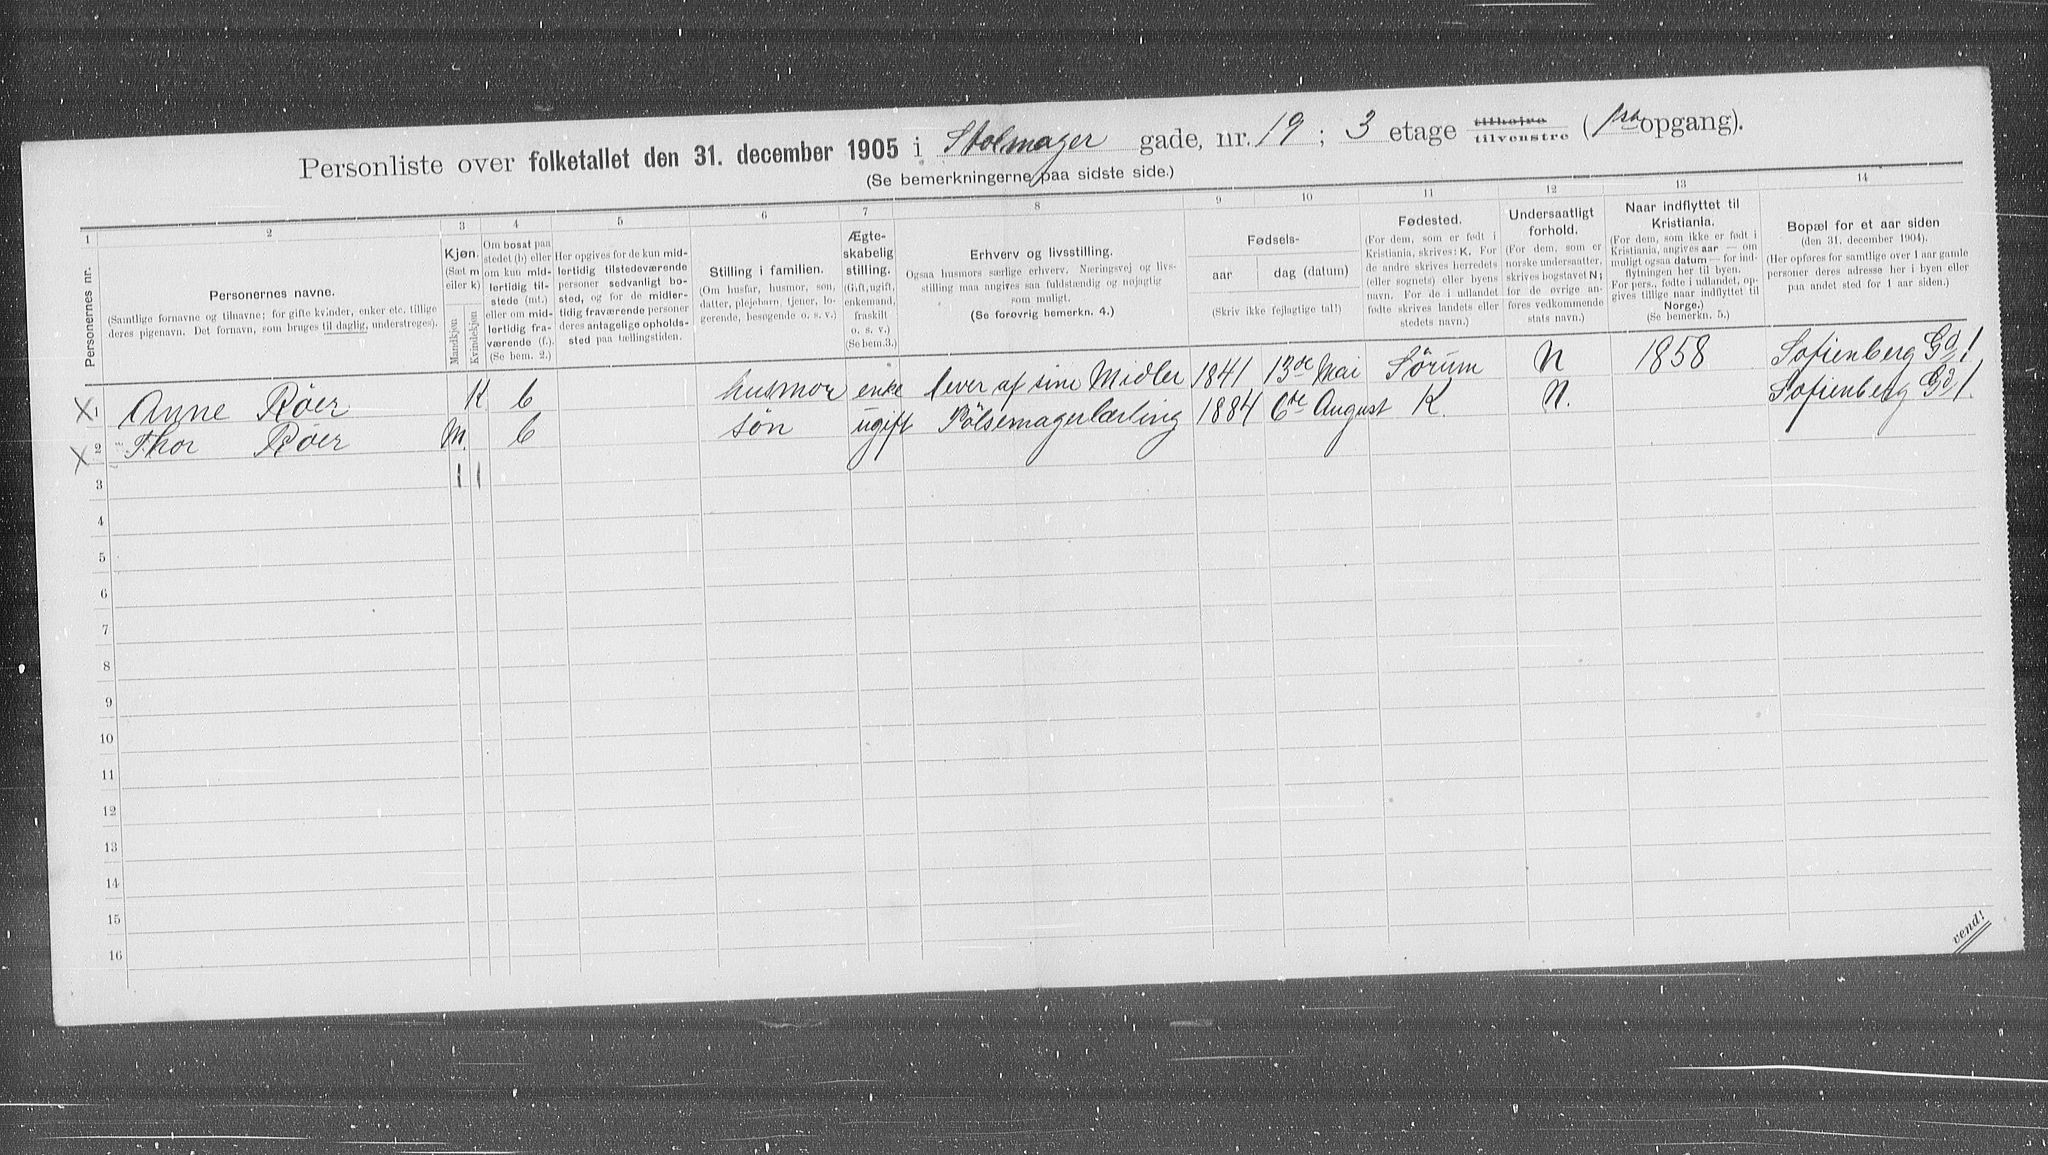 Personliste over folketallet den 31. december 1905 i Stolmager gade, nr. 19; 3 etage tilhøire tilvenstre (1ste opgang).
(Se bemerkningerne paa sidste side.)
1 2 3 4 5 6 7 8 9 10 11 12 13 14
Personernes nr.
Personernes navne.
(Samtlige fornavne og tilnavne; for gifte kvinder, enker etc. tillige
deres pigenavn. Det fornavn, som bruges til daglig, understreges).
Kjøn.
(Sæt m
eller k)
Mandkjøn
Kvindekjøn
Om bosat paa
stedet (b) eller
om kun mid-
lertidig til-
stede (mt.)
eller om mid-
lertidig fra-
værende (f.).
(Se bem. 2.)
Her opgives for de kun mid-
lertidig tilstedeværende
personer sedvanligt bo-
sted, og for de midler-
tidig fraværende personer
deres antagelige opholds-
sted paa tællingstiden.
Stilling i familien.
(Om husfar, husmor, søn,
datter, plejebarn, tjener, lo-
gerende, besøgende o. s. v.)
Ægte-
skabelig
stilling.
(Gift, ugift,
enkemand,
fraskilt
o. s. v.)
(Se bem.3.)
Erhverv og livsstilling.
Ogsaa husmors særlige erhverv. Næringsvej og livs-
stilling maa angives saa fuldstændig og nøjagtig
som muligt.
(Se forøvrig bemerkn. 4.)
Fødsels-
aar dag (datum)
(Skriv ikke fejlagtige tal!)
Fødested.
(For dem, som er født i
Kristiania, skrives: K. For
de andre skrives herredets
(eller sognets) eller byens
navn. For de i udlandet
fødte skrives landets eller
stedets navn.)
Undersaatligt
forhold.
(For dem, som er
norske undersaatter,
skrives bogstavet N;
for de øvrige an-
føres vedkommende
stats navn.)
Naar indflyttet til
Kristiania.
(For dem, som ikke er født i
Kristiania, angives aar — om
muligt ogsaa datum — for ind-
flytningen her til byen.
For pers., fødte i udlandet, op-
gives tillige naar indflyttet til
Norge.)
(Se bemerkn. 5.)
Bopæl for et aar siden
(den 31. december 1904).
(Her opføres for samtlige over 1 aar gamle
personer deres adresse her i byen eller
paa andet sted for 1 aar siden.)
X 1 Anne Röer K b husmor enke lever af sine Midler 1841 13de Mai Sörum N 1858 Sofienberg Gd 1
X 2 Thor Röer M. b sön ugift Pölsemagerlærling 1884 6te August K. N. Sofienberg Gd 1.
3 1 1
4
5
6
7
8
9
10
11
12
13
14
15
16
vend!